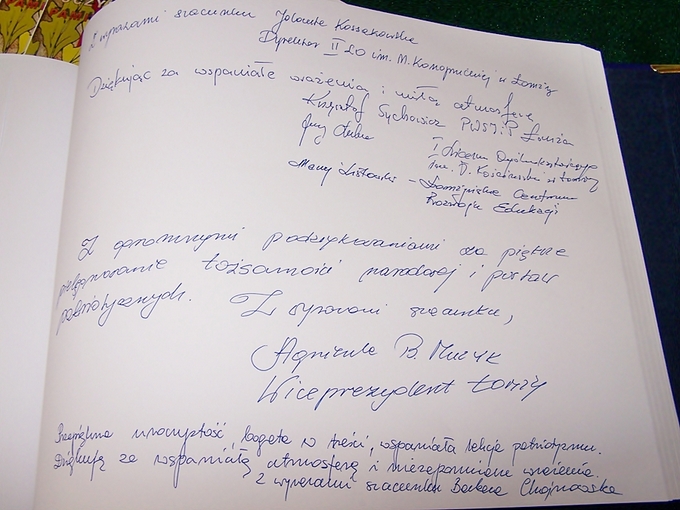 Z wyrazami szacunku Jolanta Kossakowska
Dyrektor II LO im. M. Konopnickiej w Łomży
Dziękując za wspaniałe wrażenia i miłą atmosferę
Krzysztof Sychowicz PWSIiP Łomża
Jerzy
I Liceum Ogólnokształcące
im. T. Kościuszki w Łomży
Maciej – Łomżyńskie Centrum
Rozwoju Edukacji
Z ogromnymi podziękowaniami za piękne
pielęgnowanie tożsamości narodowej i postaw
patriotycznych. Z wyrazami szacunku,
Agnieszka B. Muzyk
Wiceprezydent Łomży
Przepiękna uroczystość, bogata w treści, wspaniała lekcja patriotyzmu.
Dziękuję za wspaniałą atmosferę i niezapomniane wrażenia.
Z wyrazami szacunku Barbara Chojnowska